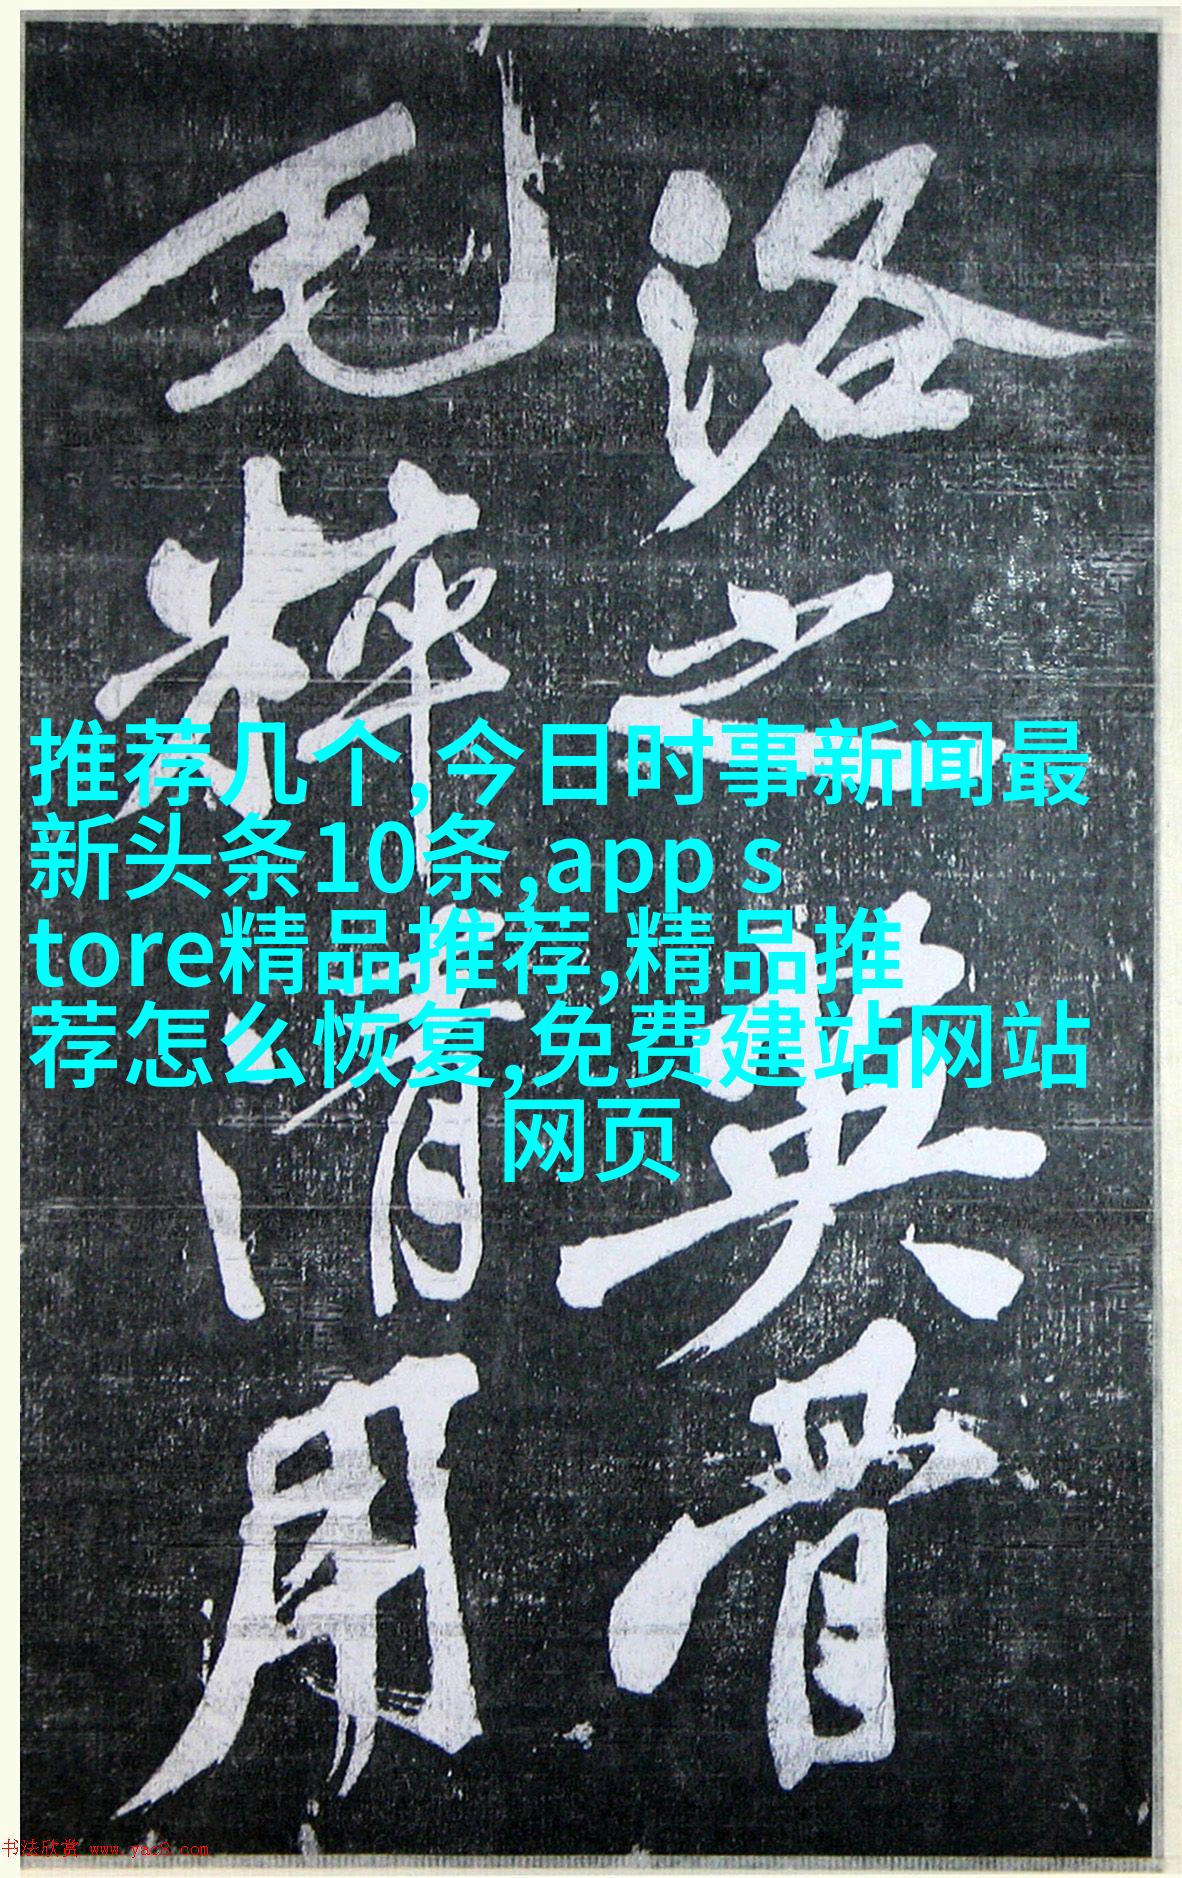 推荐几个,今日时事新闻最
新头条10条,app s
tore精品推荐,精品推
荐怎么恢复,免费建站网站
网页
洛之英骨
粹清用
书法欣赏 www.yac8.com